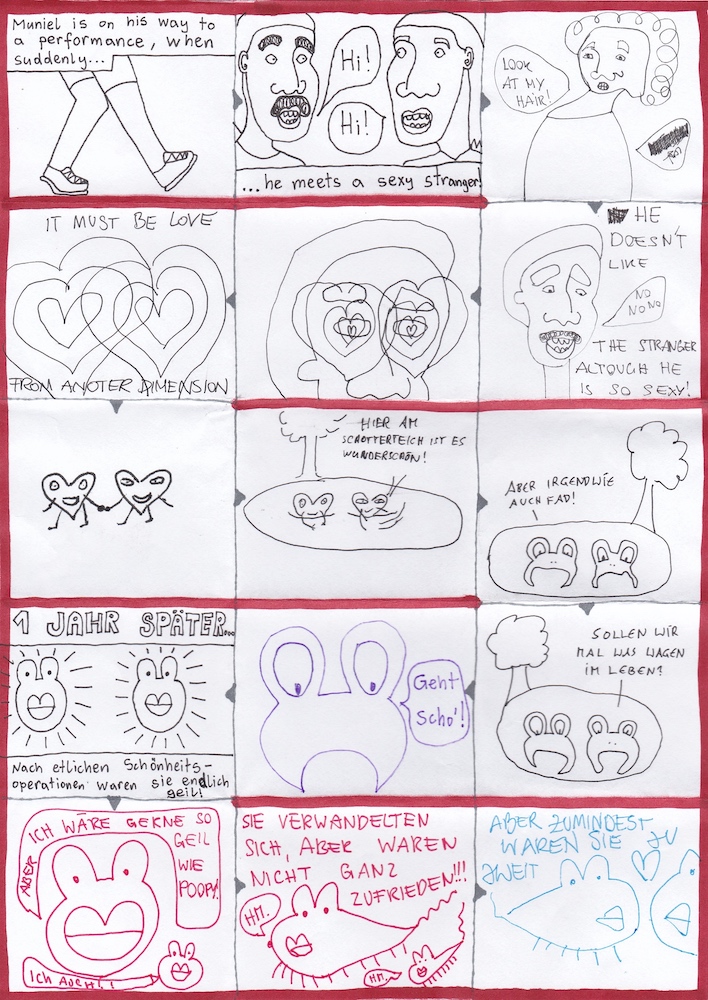 Muniel is on his way to
a performance, when
suddenly...
Hi!
Hi!
...he meets a sexy stranger!
LOOK
AT MY
HAIR!
HE
DOESN'T
LIKE
NO
NO NO
THE STRANGER
ALTOUGH HE
IS SO SEXY!
IT MUST BE LOVE
FROM ANOTER DIMENSION
HIER AM
SCHOTTERTEICH IST ES
WUNDERSCHÖN!
ABER IRGENDWIE
AUCH FAD!
SOLLEN WIR
MAL WAS WAGEN
IM LEBEN?
Geht
Scho'!
1 JAHR SPÄTER...
Nach etlichen Schönheits-
operationen waren sie endlich
geil!
ABER
ICH WÄRE GERNE SO
GEIL
WIE
POOPY!
Ich AUCH!!
SIE VERWANDELTEN
SICH, ABER WAREN
NICHT GANZ
ZUFRIEDEN!!!
HM.
HM.
ABER ZUMINDEST
WAREN SIE ZU
ZWEIT